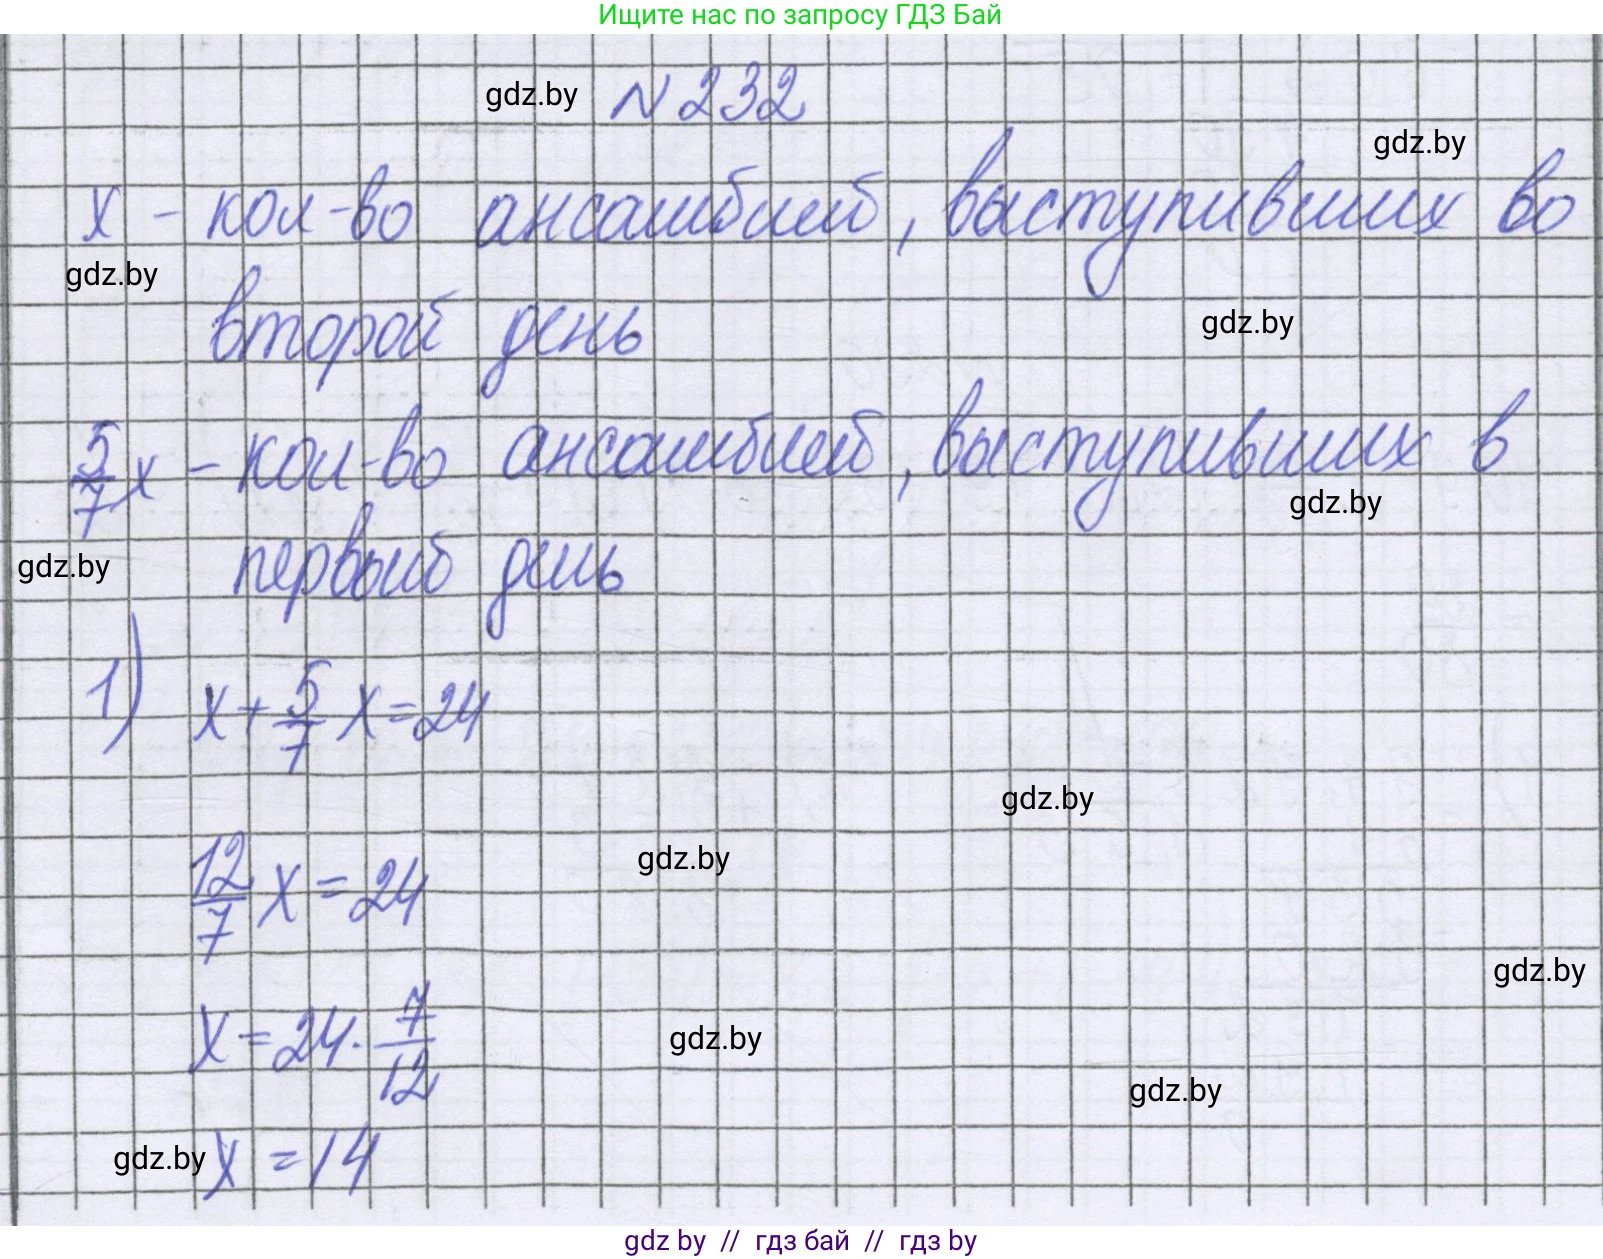 Ищите нас по запросу ГДЗ Бай
gdz.by N 232
gdz.by
x - кол-во ансамблей, выступивших во
gdz.by
второй день
gdz.by
5/7 x - кол-во ансамблей, выступивших в
gdz.by
первый день
gdz.by
1) x + 5/7 x = 24
gdz.by
12/7 x = 24
gdz.by
gdz.by
x = 24 · 7/12
gdz.by
gdz.by
gdz.by x = 14
gdz by // гдз бай // гдз by